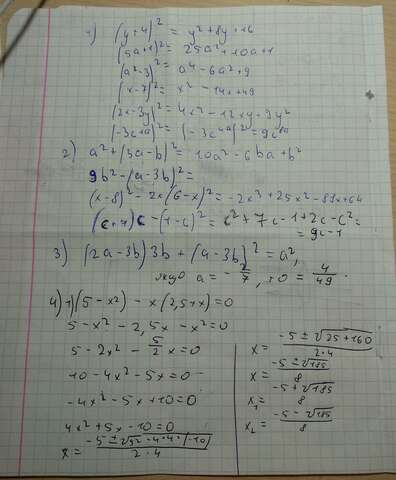 1) (y+4)² = y²+8y+16
(5a+1)² = 25a²+10a+1
(a²-3)² = a⁴-6a²+9
(x-7)² = x²-14x+49
(2x-3y)² = 4x²-12xy+9y²
2) a²+(3a-b)² = 10a²-6ba+b²
9b²-(a-3b)² =
(x-8)²-2x(6-x)² = -2x³+25x²-88x+64
(c+7)c-(1-c)² = c²+7c-1+2c-c² =
= 9c-1
3) (2a-3b)3b+(a-3b)² = a²,
якщо a = -2/7, то = 4/49.
4) 1) (5-x²)-x(2,5+x)=0
5-x²-2,5x-x²=0
5-2x²-5/2x=0
10-4x²-5x=0
-4x²-5x+10=0
4x²+5x-10=0
x = -5±√5²-4·4·(-10) / 2·4
x = -5±√25+160 / 2·4
x = -5±√185 / 8
x₁ = -5+√185 / 8
x₂ = -5-√185 / 8